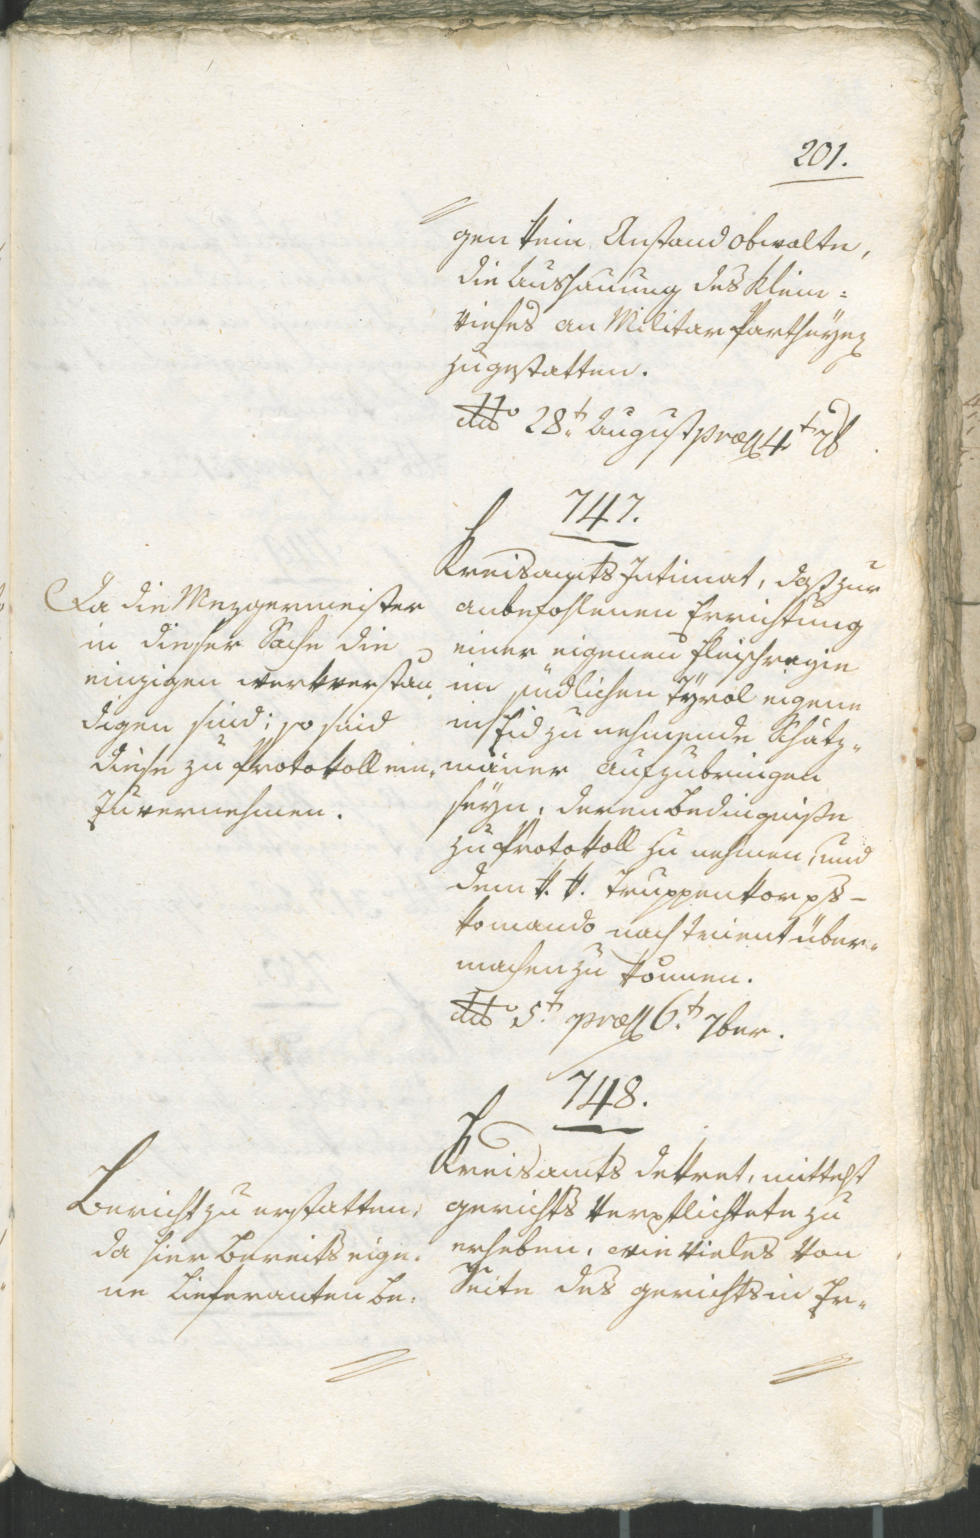 201.
gen kein Anstand obwalte,
die Aushauung des Klein=
viehes an Militar Partheyen
zugestatten.
dto 28t. August præs 4t 7b
747.
Kreisamts Intimat, daß zur
anbefohlenen Errichtung
einer eigenen Fleischregie
im südlichen Tyrol eigene
in Eid zu nehmende Schätz=
mäner aufzubringen
seyn, deren Bedingniße
zu Protokoll zu nehmen, und
dem k. k. Truppenkorps=
komando nach Trient über=
machen zu können.
dto 5t. præs 6t. 7ber.
Da die Mezgermeister
in dieser Sache die
einzigen werkverstän
digen sind; so sind
diese zu Protokoll ein=
zuvernehmen.
748.
Kreisamts Dekret, mittelst
gerichts verpflichtete zu
erheben, wie vieles von
Seite des gerichts in Er=
Bericht zu erstatten,
da hier bereits eige=
ne Lieferanten be=